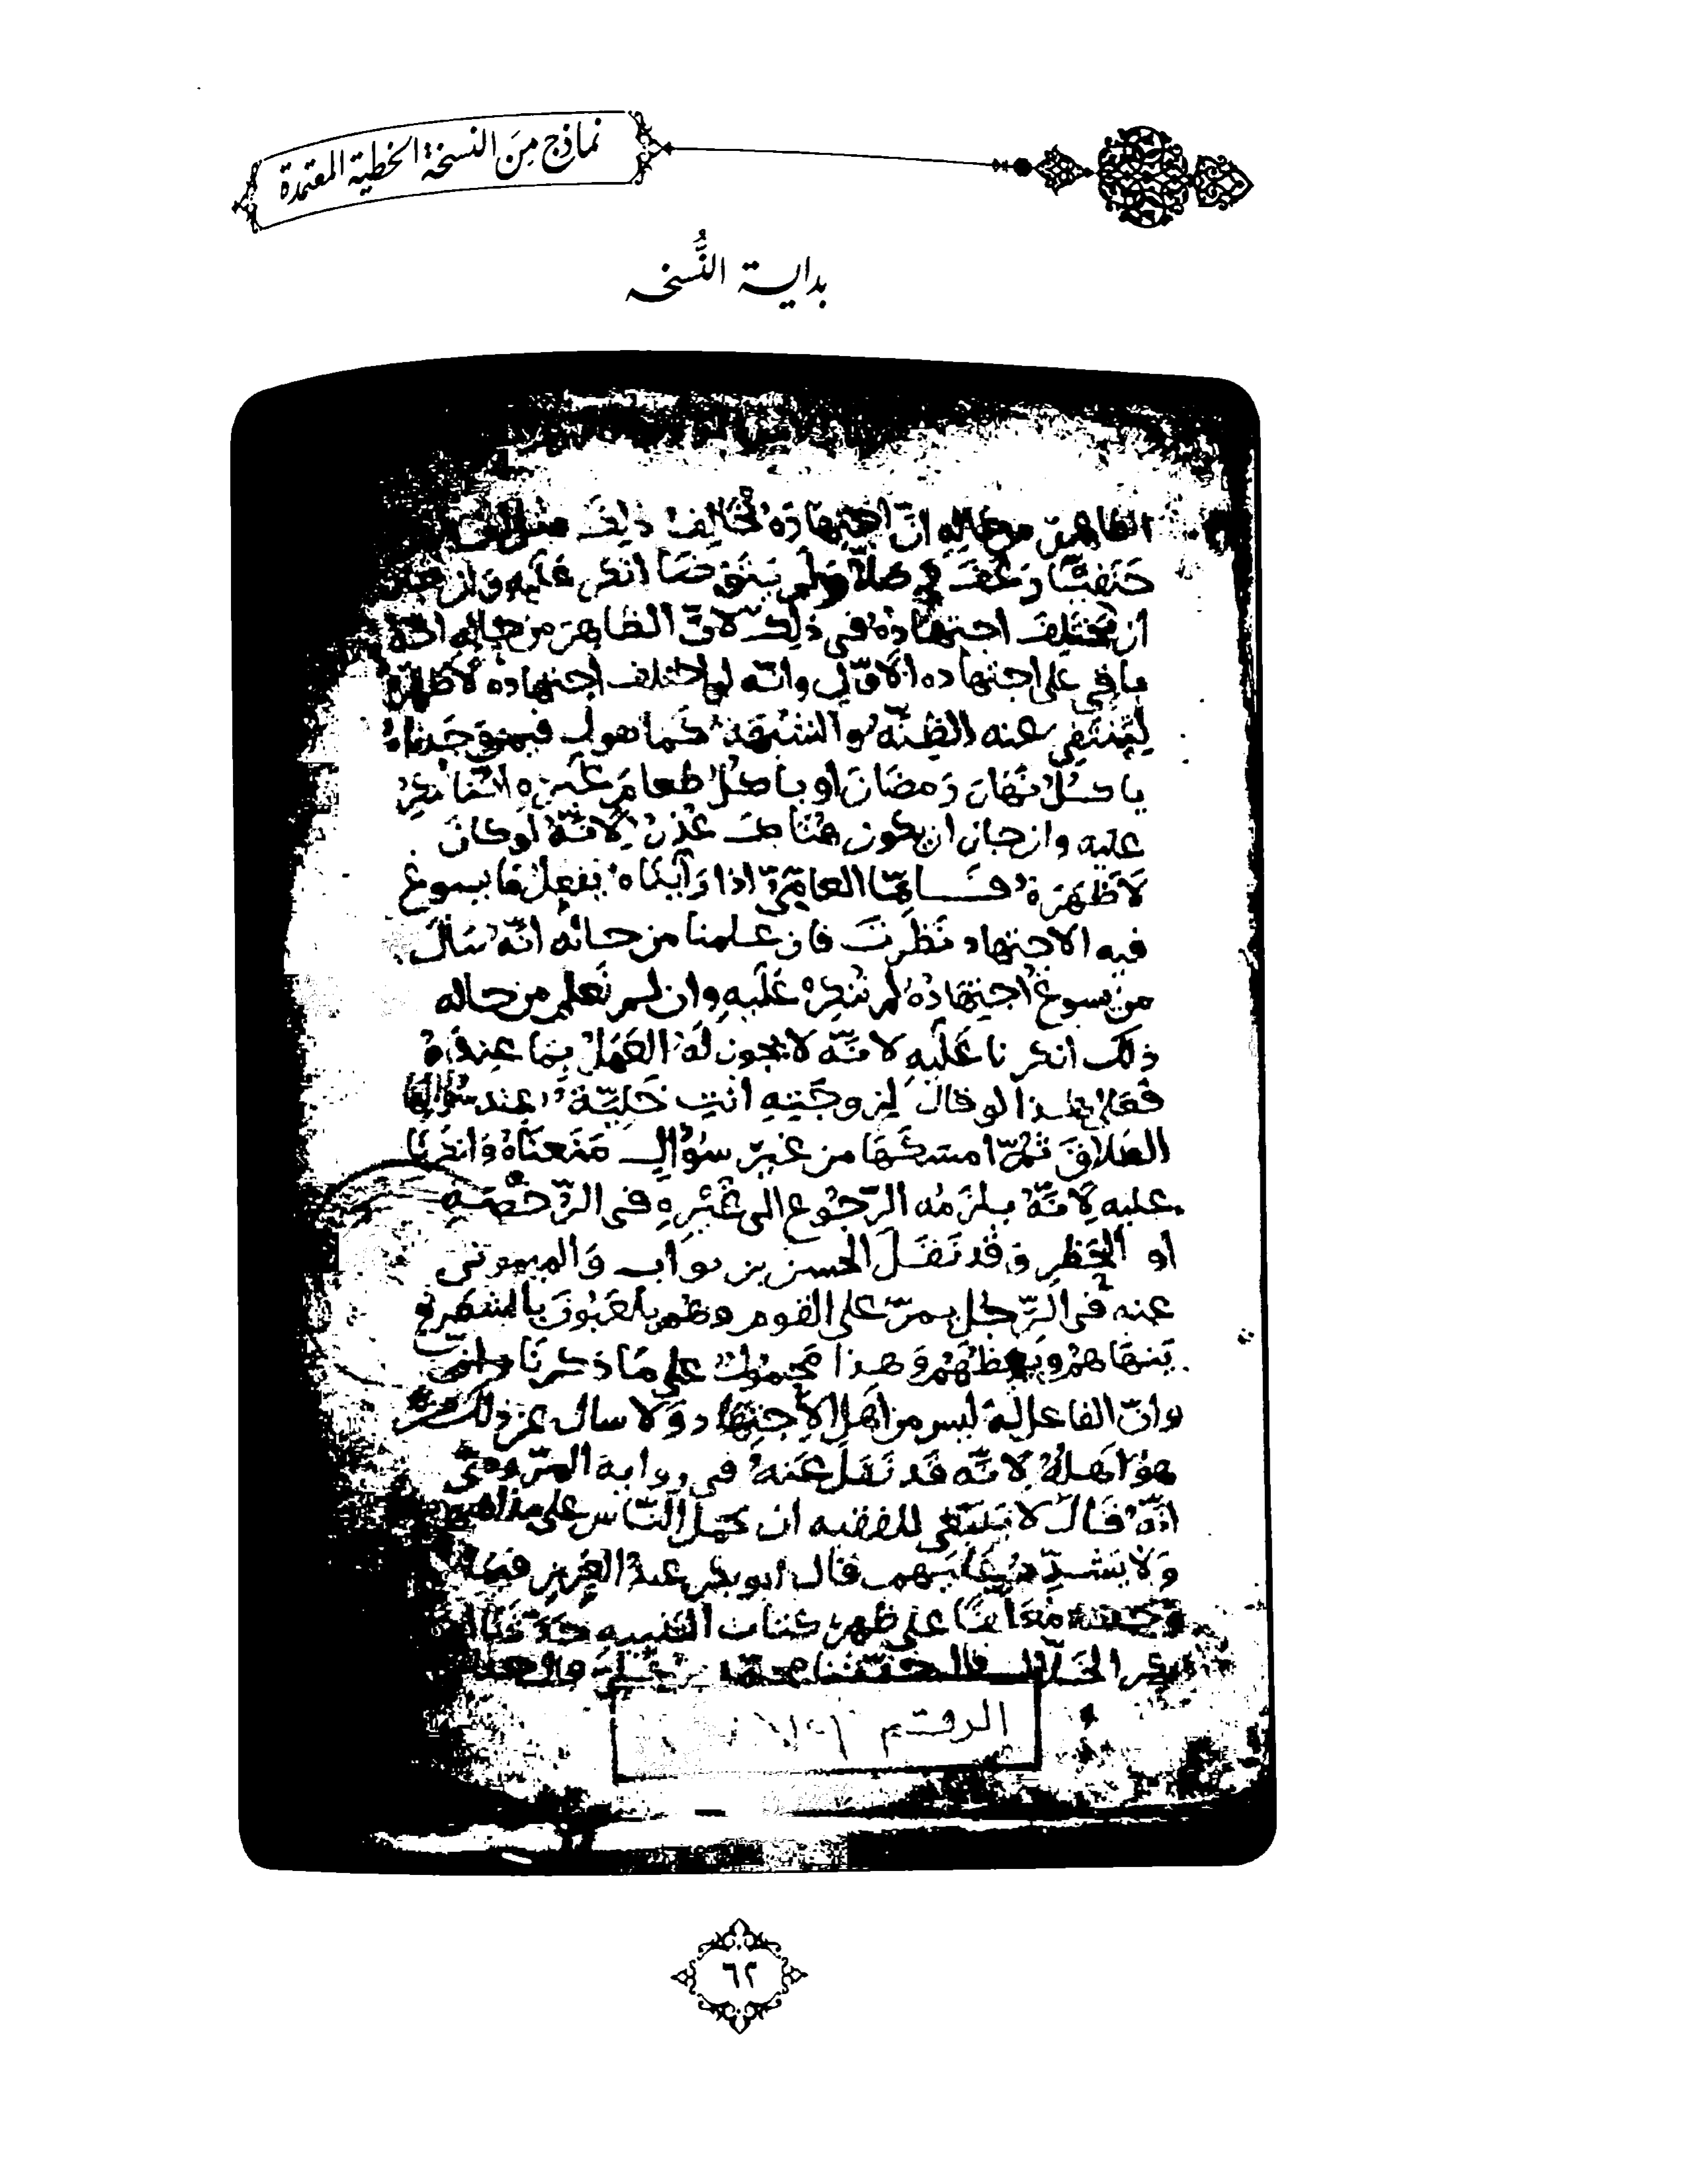 نماذج مِنَ النسخة الخطية المعتمدة
بداية النُّسخة
الظاهر من حاله انّ اجتهاده يُخَالِفُ ذلِكَ
حَنَفيًّا رَعَفَ في صلاةٍ ولم يَتَوَضّا انكر عَلَيه وَان
ان يختلِفَ اجتهادُهُ في ذلك لانّ الظاهِرَ من حاله انّهُ
باقي على اجتهاده الاوّل وانّه لو اختلف اجتهاده لاظهرهُ
لِيَنْتَفِي عنه الظِنّه والشُبْهَة كما هو فيمن وَجَدناهُ
ياكُلُ نَهَارَ رَمضَانَ او ياكُلُ طعامَ غَيْرِهِ انّا نُنكِرُ
عليه وان جاز ان يكون هُنَاك عُذرٌ لِانَّهُ لَو كَانَ
لَاَظْهَرَهُ فَامّا العامّيّ اذا رَاَيْنَاهُ يَفعلُ ما يسوغ
فيه الاجتهاد نَظَرتَ فان علمنا من حاله انّه سَالَ
من يسوغُ اجتِهادُهُ لم نُنكِرْهُ عَلَيْهِ وان لم نَعلم من حاله
ذلك انكرنا عَلَيْهِ لانّه لا يجوز لَهُ العَمَلُ بِمَا عِندَهُ
فَعَلى هذا لو قالَ لِزوجَتِهِ انتِ خَلِيّةٌ عند سُؤالِهَا
الطَلاقَ ثمّ امسَكَهَا من غَيرِ سؤالٍ مَنَعنَاهُ وَانكرنَا
عليه لِانَّهُ يلزمُه الرّجُوع الى غَيْرِهِ في الرُّخصَةِ
او الحَظرِ وَقد نَقَلَ الحسن بن ثواب وَالميموني
عنه في الرّجُل يمرّ على القوم وهم يلعَبُونَ بالشطرنج
يَنهَاهُمْ وَيعِظُهُمْ وَهذا مَحمُولٌ على مَا ذكرنَا
وانّ الفاعل لهُ ليس من اهلِ الاِجتِهَاد وَلا سال عن ذلك من
هُوَ اَهلهُ لِانّه قَد نَقَلَ عَنهُ في رواية المرّوذيّ
انّهُ قَالَ لا يَنبَغي للفقيه ان يحمل النّاس على
وَلا يُشَدِّدُ عَلَيهم قال ابو بكر عبدُ العَزيزِ فيمَا
وَجدته مُعَلّقًا على ظهر كتاب حَدّثنَا
بكر الخَلّال قال حَدّثنا محمّد بن عَلي
الرقم
٦٢